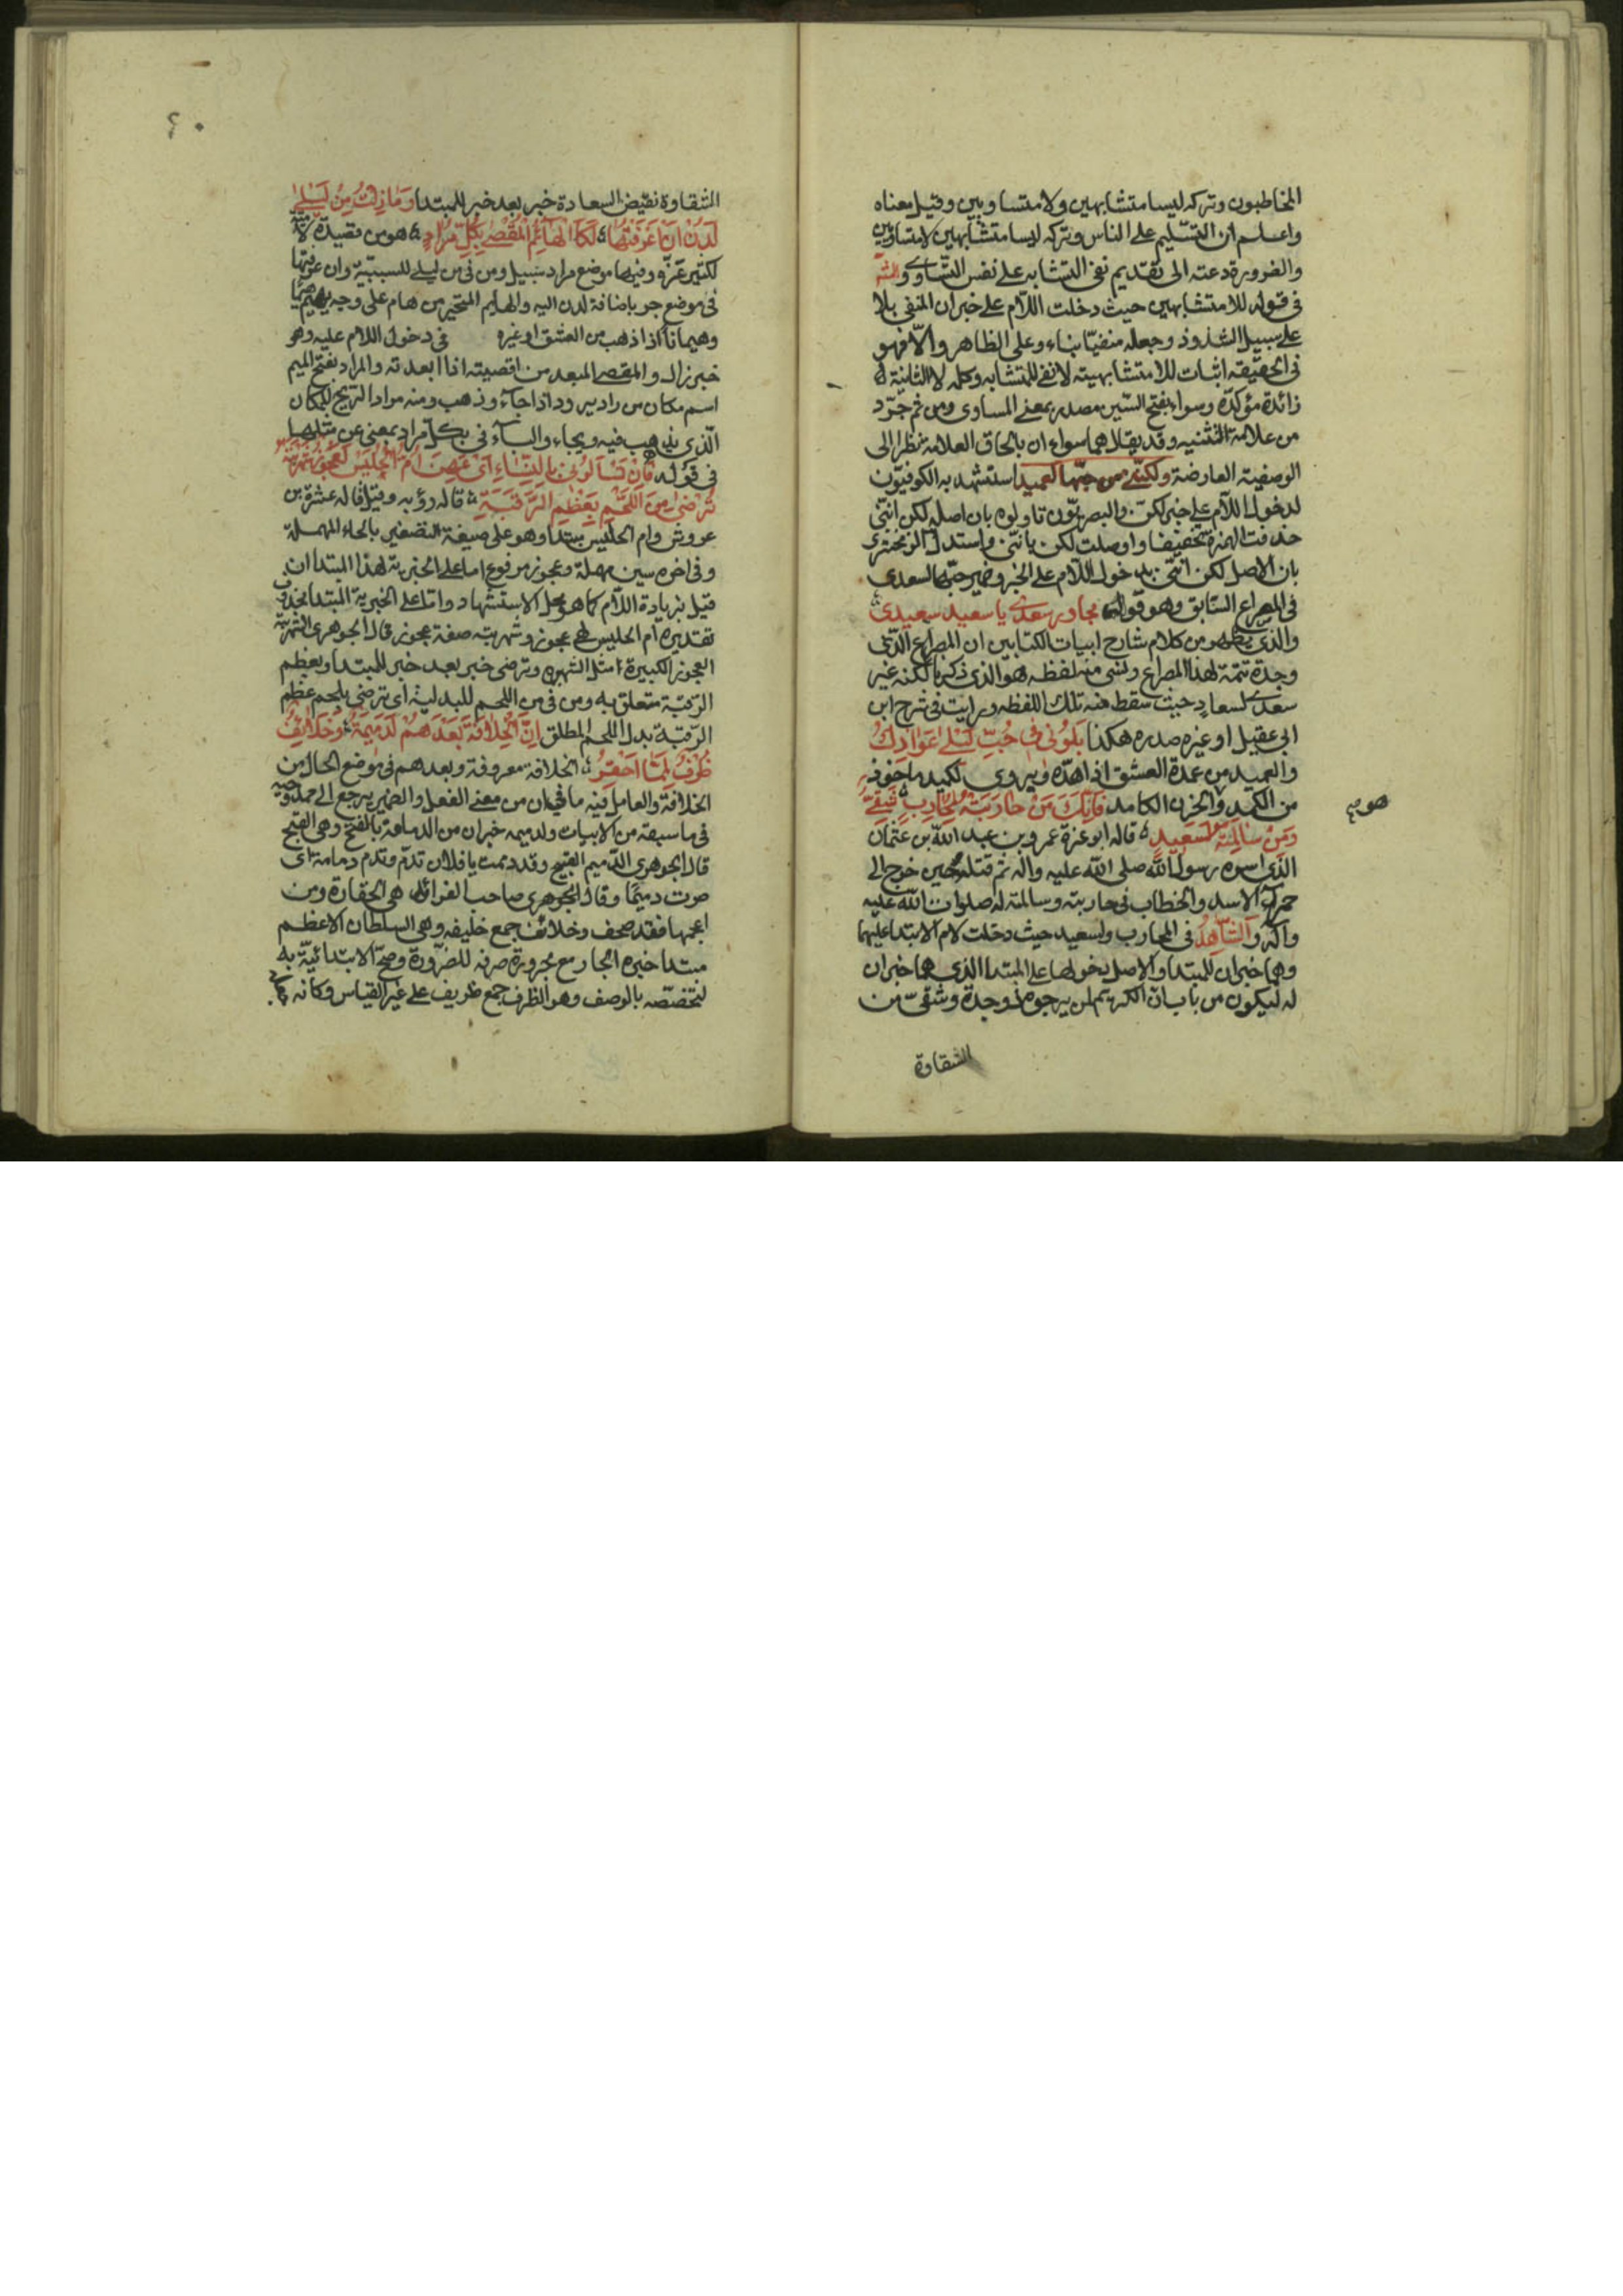 المخاطبون وتركه ليسا متشابهين ولا متساويين وقيل معناه
واعلم ان التسليم على الناس وتركه ليسا متشابهين لا متساويين
والضرورة دعته الى تقديم نفى التشابه على نفى التساوى و
فى قوله للا متشابهين حيث دخلت اللام على خبر ان المنفى بلا
على سبيل الشذوذ وجعله منفيا بناء وعلى الظاهر والا فهو
فى الحقيقة اثبات للا متشابهية لا نفى للتشابه وكلمه لا الثانية
زائدة مؤكدة وسواء بفتح السين مصدر بمعنى المساوى ومن ثم جرّد
من علامة التثنيه وقد يقال هما سواء ان بالحاق العلامة نظرا الى
الوصفية العارضة ولكننى من حبها لعميد استشهد به الكوفيون
لدخول اللام على خبر لكن والبصريون تاولوه بان اصله لكن اننى
حذفت الهمزة تخفيفا واوصلت لكن بانّنى واستدل الزمخشرى
بان الاصل لكن اننى بدخول اللام على الخبر وضمير حبها لسعدى
فى المصراع السابق وهو قوله سعدى يا سعيد سعيدى
والذى يظهر من كلام شارح ابيات الكتابين ان المصراع الذى
وجدة تتمة لهذا المصراع ونسى منه لفظه هو الذى ذكره لكنه غير
سعدى لسعاد حيث سقط منه تلك اللفظه ورايت فى شرح ابن
ابى عقيل او غيره صدره هكذا يلوموننى فى حب ليلى عواذلى
والعميد من عمدة العشق اذا هدّه ويروى لكميد ماخوذ
من الكمد والحزن الكامد فانك من حاربته لمحارب شقىّ
ومن سالمته لسعيد قاله ابو عزة عمرو بن عبد الله بن عثمان
الذى اسره رسول الله صلى الله عليه واله ثم قتله حين خرج الى
حمراء الاسد والخطاب فى حاربته وسالمته له صلوات الله عليه
واله والشاهد فى لمحارب ولسعيد حيث دخلت لام الابتدا عليهما
وهما خبران للمبتدا والاصل دخولها على المبتدا الذى هما خبران
له ليكون من باب ان الكريم لمن يرجوه ذو جدة وشقىّ من
الشقاوة
الشقاوة نقيض السعادة خبر بعد خبر للمبتدا وما زلت من ليلى
لدن ان عرفتها لكا الهائم المقصى بكل مراد هو من قصيدة
لكثير عزّه وفيها موضع مراد سبيل ومن فى من ليلى للسببية وان عرفتها
فى موضع جر باضافة لدن اليه والهايم المتحير من هام على وجهه يهيم هيما
وهيمانا اذا ذهب من العشق او غيره فى دخول اللام عليه وهو
خبر زال والمقصى المبعد من اقصيته اذا ابعدته والمراد بفتح الميم
اسم مكان من راد يرود اذا جاء وذهب ومنه مراد الريح للمكان
الذى يذهب فيه ويجاء والباء فى بكل مراد بمعنى عن مثلها
فى قوله فان تسالونى بالنساء اى عن ام الحليس لعجوز شهربة
ترضى من اللحم بعظم الرقبة قاله رؤبه وقيل قاله عنترة بن
عروش وام الحليس مبتدا وهو على صيغة التصغير بالحاء المهملة
وفى اخره سين مهملة وعجوز مرفوع اما على الخبرية لهذا المبتدا ان
قيل بزيادة اللام كما هو محل الاستشهاد واما على الخبرية المبتدا محذوف
تقديره ام الحليس لهى عجوز وشهربة صفة عجوز قال الجوهرى الشهربة
العجوز الكبيرة مثل الشهبره وترضى خبر بعد خبر للمبتدا وبعظم
الرقبة متعلق به ومن فى من اللحم للبدلية اى ترضى بلحم عظم
الرقبة بدل اللحم المطلق ان الخلافة بعدهم لدميمة وخلائف
ظرف لمما احقر الخلافة معروفة وبعدهم فى موضع الحال من
الخلافة والعامل فيه ما فى ان من معنى الفعل والضمير يرجع الى
فى ما سبقه من الابيات ولدميمه خبر ان من الدمامة بالفتح وهى القبح
قال الجوهرى الدميم القبيح وقد دممت يا فلان تدم وتدم دمامة اى
صرت دميمًا وقال الجوهرى صاحب الفرائد هى الحقارة ومن
اعجمها فقد صحف وخلائف جمع خليفه وهى السلطان الاعظم
مبتدا خبره الجار مع مجرورة صرفه للضرورة وصح الابتدائية به
لتخصصه بالوصف وهو الظرف جمع ظريف على غير القياس وكانه